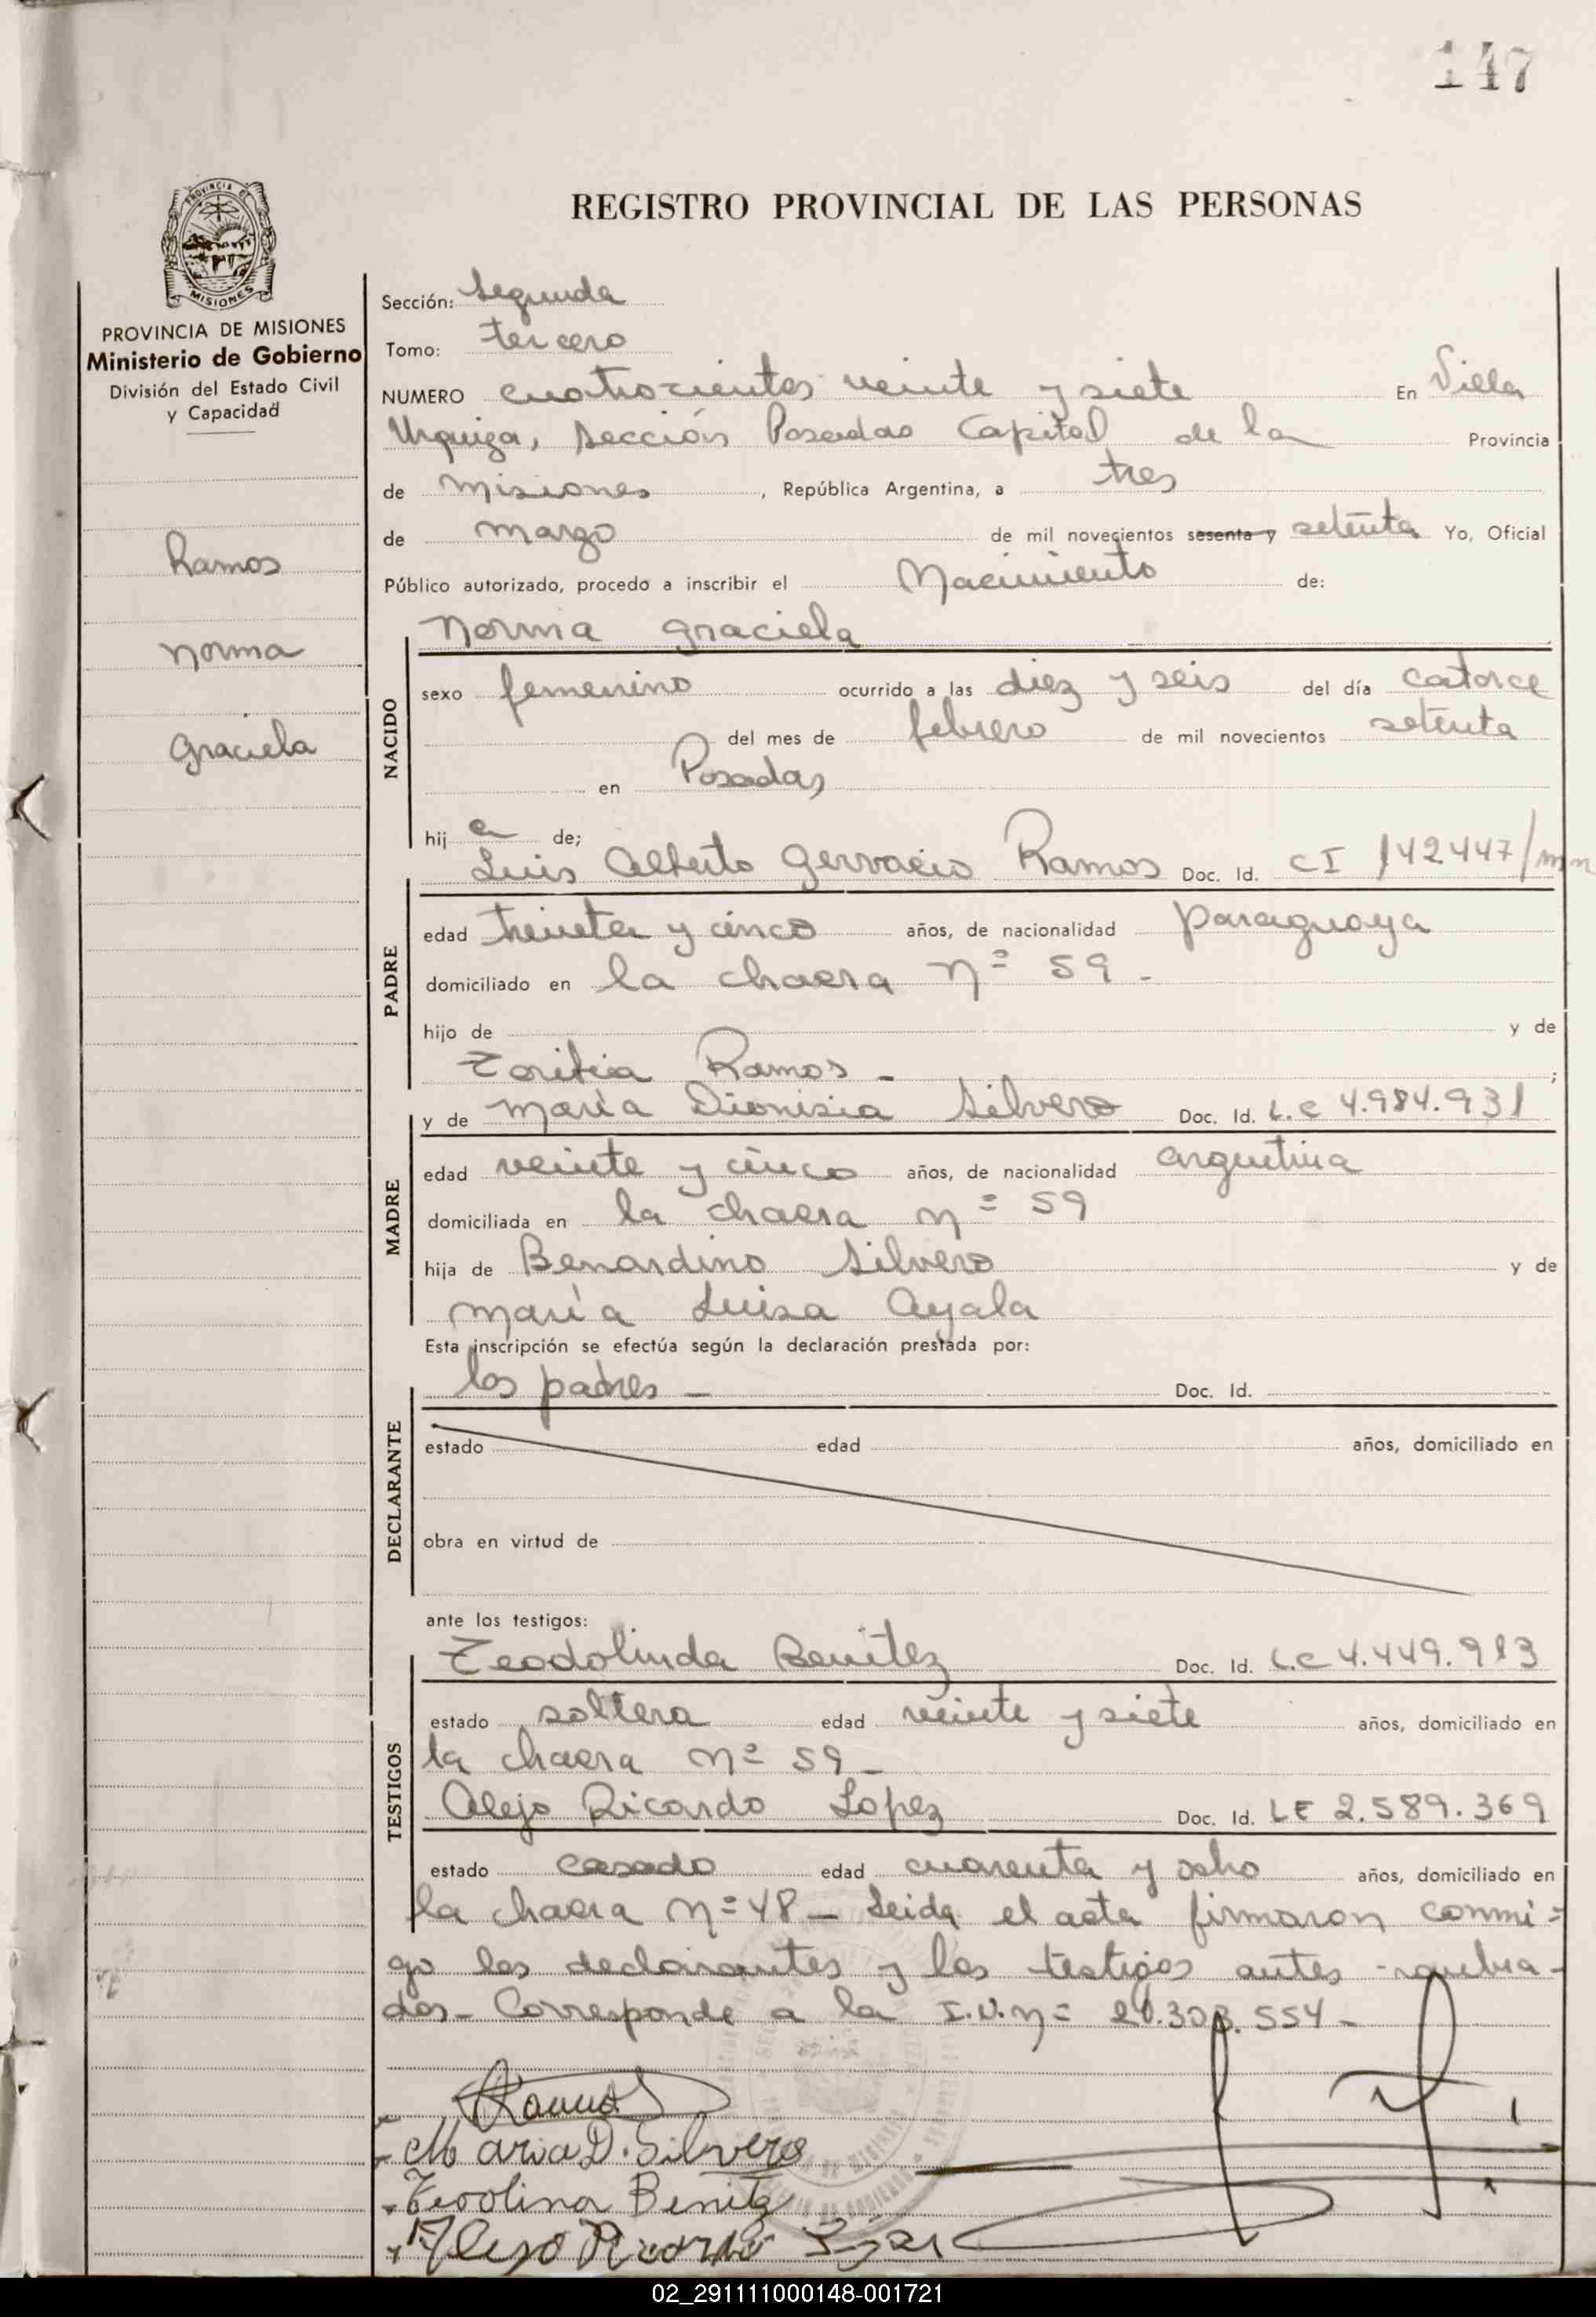 147
PROVINCIA DE
MISIONES
REGISTRO PROVINCIAL DE LAS PERSONAS
PROVINCIA DE MISIONES
Ministerio de Gobierno
División del Estado Civil
y Capacidad
Ramos
Norma
Graciela
Sección: Segunda
Tomo: tercero
NUMERO cuatrocientos veinte y siete En Villa
Urquiza, Sección Posadas Capital de la Provincia
de Misiones, República Argentina, a tres
de marzo de mil novecientos sesenta y setenta Yo, Oficial
Público autorizado, procedo a inscribir el Nacimiento de:
NACIDO
Norma Graciela
sexo femenino ocurrido a las diez y seis del día catorce
del mes de febrero de mil novecientos setenta
en Posadas
hij a de;
PADRE
Luis Alberto Gervacio Ramos Doc. Id. CI 142.447/mn
edad treinta y cinco años, de nacionalidad paraguaya
domiciliado en la chacra Nº 59 -
hijo de y de
Toribia Ramos - ;
MADRE
y de María Dionisia Silvero Doc. Id. L.C 4.984.931
edad veinte y cinco años, de nacionalidad argentina
domiciliada en la chacra nº 59
hija de Benardino Silvero y de
María Luisa Ayala
Esta inscripción se efectúa según la declaración prestada por:
DECLARANTE
los padres - Doc. Id.
estado edad años, domiciliado en
obra en virtud de
ante los testigos:
TESTIGOS
Teodolinda Benitez Doc. Id. L.C 4.449.913
estado soltera edad veinte y siete años, domiciliado en
la chacra nº 59 -
Alejo Ricardo Lopez Doc. Id. LE 2.589.369
estado casado edad cuarenta y ocho años, domiciliado en
la chacra nº 48 - Leida el acta firmaron conmi=
go los declarantes y los testigos antes nombra-
dos - Corresponde a la
Ramos
Maria D. Silvero
Teolina Benitz
02_291111000148-001721